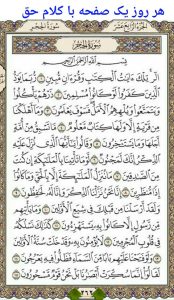 هر روز یک صفحه با کلام حق
الجزء الرابع عشر
سورة الحجر
سُورَةُ الحِجْرِ
بِسْمِ ٱللَّهِ ٱلرَّحْمَٰنِ ٱلرَّحِيمِ
الٓر ۚ تِلْكَ ءَايَٰتُ ٱلْكِتَٰبِ وَقُرْءَانٍ مُّبِينٍ ۝١ رُّبَمَا
يَوَدُّ ٱلَّذِينَ كَفَرُوا۟ لَوْ كَانُوا۟ مُسْلِمِينَ ۝٢ ذَرْهُمْ يَأْكُلُوا۟
وَيَتَمَتَّعُوا۟ وَيُلْهِهِمُ ٱلْأَمَلُ ۖ فَسَوْفَ يَعْلَمُونَ ۝٣ وَمَآ أَهْلَكْنَا
مِن قَرْيَةٍ إِلَّا وَلَهَا كِتَابٌ مَّعْلُومٌ ۝٤ مَّا تَسْبِقُ مِنْ أُمَّةٍ
أَجَلَهَا وَمَا يَسْتَـْٔخِرُونَ ۝٥ وَقَالُوا۟ يَٰٓأَيُّهَا ٱلَّذِى نُزِّلَ عَلَيْهِ
ٱلذِّكْرُ إِنَّكَ لَمَجْنُونٌ ۝٦ لَّوْ مَا تَأْتِينَا بِٱلْمَلَٰٓئِكَةِ إِن كُنتَ
مِنَ ٱلصَّٰدِقِينَ ۝٧ مَا نُنَزِّلُ ٱلْمَلَٰٓئِكَةَ إِلَّا بِٱلْحَقِّ وَمَا كَانُوٓا۟
إِذًا مُّنظَرِينَ ۝٨ إِنَّا نَحْنُ نَزَّلْنَا ٱلذِّكْرَ وَإِنَّا لَهُۥ لَحَٰفِظُونَ ۝٩
وَلَقَدْ أَرْسَلْنَا مِن قَبْلِكَ فِى شِيَعِ ٱلْأَوَّلِينَ ۝١٠ وَمَا يَأْتِيهِم
مِّن رَّسُولٍ إِلَّا كَانُوا۟ بِهِۦ يَسْتَهْزِءُونَ ۝١١ كَذَٰلِكَ نَسْلُكُهُۥ
فِى قُلُوبِ ٱلْمُجْرِمِينَ ۝١٢ لَا يُؤْمِنُونَ بِهِۦ ۖ وَقَدْ خَلَتْ سُنَّةُ ٱلْأَوَّلِينَ
۝١٣ وَلَوْ فَتَحْنَا عَلَيْهِم بَابًا مِّنَ ٱلسَّمَآءِ فَظَلُّوا۟ فِيهِ يَعْرُجُونَ
۝١٤ لَقَالُوٓا۟ إِنَّمَا سُكِّرَتْ أَبْصَٰرُنَا بَلْ نَحْنُ قَوْمٌ مَّسْحُورُونَ ۝١٥
٢٦٢